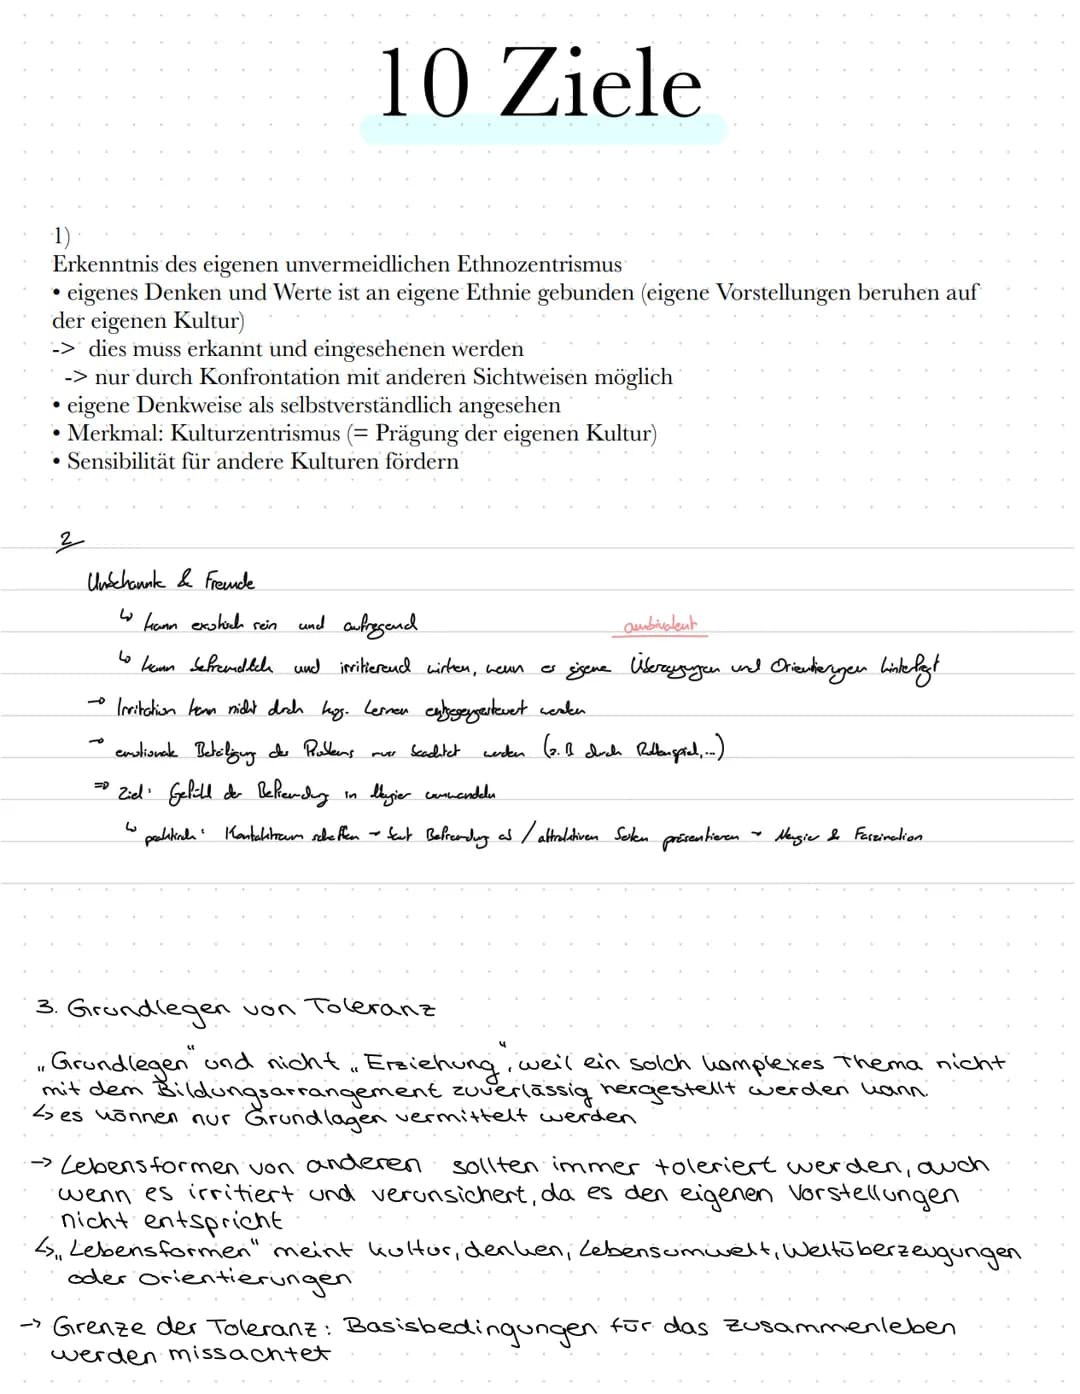 10 Ziele
1)
Erkenntnis des eigenen unvermeidlichen Ethnozentrismus
• eigenes Denken und Werte ist an eigene Ethnie gebunden (eigene Vorstellungen beruhen auf
der eigenen Kultur)
-> dies muss erkannt und eingesehenen werden
-> nur durch Konfrontation mit anderen Sichtweisen möglich
• eigene Denkweise als selbstverständlich angesehen
• Merkmal: Kulturzentrismus (= Prägung der eigenen Kultur)
• Sensibilität für andere Kulturen fördern
2
& Fremde
↳ kann exotisch sein und aufregend
ambivalent
↳ kann befremdlich und irritierend wirken, wenn es eigene Überzeugungen und Orientierungen hinterfragt
→ Irritation kann nicht durch kog. Lernen entgegengesteuert werden
→ emotionale Beteiligung des Problems muss beachtet werden (z.B durch Rollenspiel,...)
⇒ Ziel: Gefühl der Befremdung in Neugier umwandeln
↳ Kontaktraum schaffen → baut Befremdung ab / attraktiven Seiten präsentieren → Neugier & Faszination
3. Grundlegen von Toleranz
„Grundlegen" und nicht „Erziehung", weil ein solch komplexes Thema nicht
mit dem Bildungsarrangement zuverlässig hergestellt werden kann.
↳ es können nur Grundlagen vermittelt werden
→ Lebensformen von anderen sollten immer toleriert werden, auch
wenn es irritiert und verunsichert, da es den eigenen Vorstellungen
nicht entspricht
↳ „Lebensformen" meint kultur, denken, Lebensumwelt, Weltüberzeugungen
oder Orientierungen
→ Grenze der Toleranz: Basisbedingungen für das zusammenleben
werden missachtet